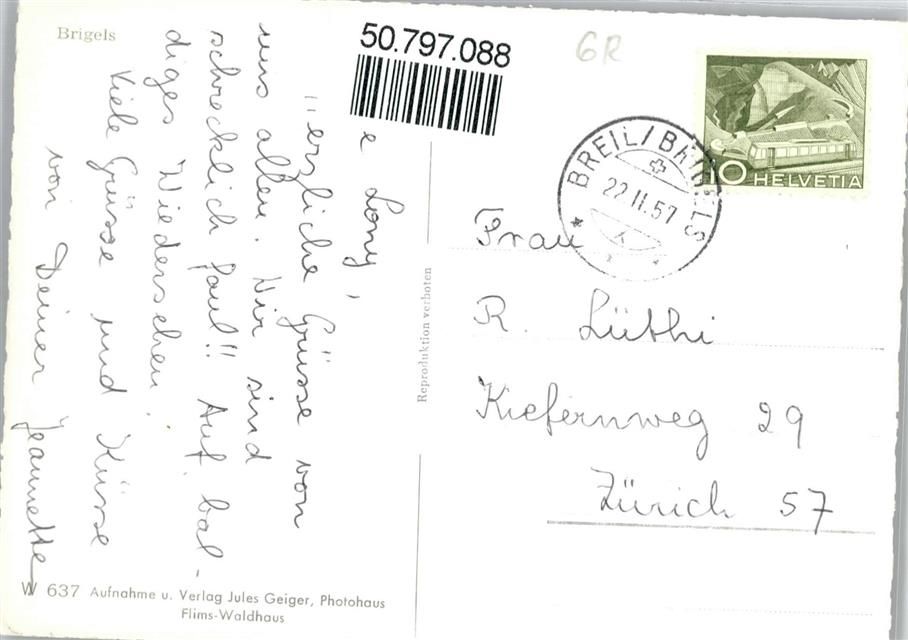 Brigels
50.797.088
GR
BREIL/BRIGELS
22.II.57
10 HELVETIA
e Lony,
erzliche Grüsse von
uns allen. Wir sind
schrecklich faul!! Auf bal-
diges Wiedersehen.
Viele Grüsse und Küsse
von Deiner Jeannette
Reproduktion verboten
Frau
R. Lüthi
Kiefernweg 29
Zürich 57
W 637 Aufnahme u. Verlag Jules Geiger, Photohaus
Flims-Waldhaus